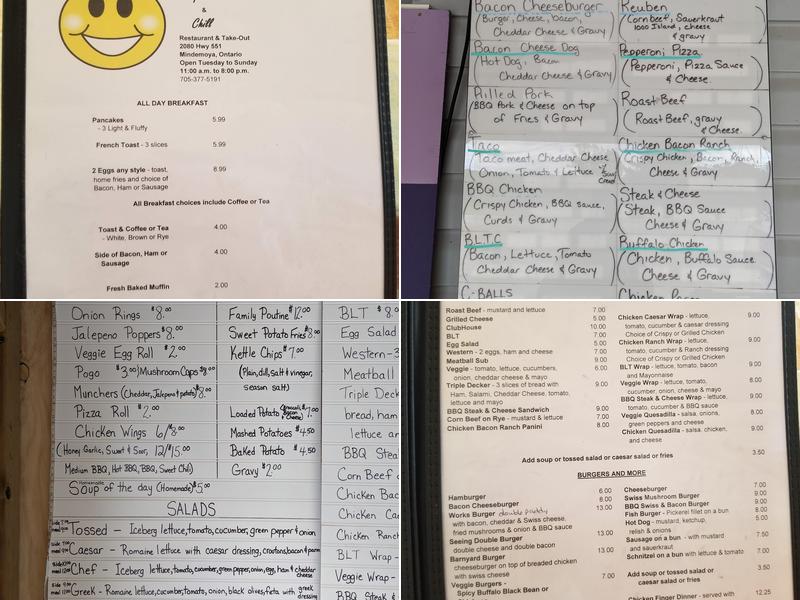 &
Chill
Restaurant & Take-Out
2080 Hwy 551
Mindemoya, Ontario
Open Tuesday to Sunday
11:00 a.m. to 8:00 p.m.
705-377-5191
ALL DAY BREAKFAST
Pancakes 5.99
- 3 Light & Fluffy
French Toast - 3 slices 5.99
2 Eggs any style - toast, 8.99
home fries and choice of
Bacon, Ham or Sausage
All Breakfast choices include Coffee or Tea
Toast & Coffee or Tea 4.00
- White, Brown or Rye
Side of Bacon, Ham or 4.00
Sausage
Fresh Baked Muffin 2.00
Bacon Cheeseburger
(Burger, Cheese, bacon,
Cheddar Cheese & Gravy)
Bacon Cheese Dog
(Hot Dog, Bacon
Cheddar Cheese & Gravy)
Pulled Pork
(BBQ Pork & Cheese on top
of Fries & Gravy)
Taco
(Taco meat, Cheddar Cheese
Onion, Tomato & Lettuce
BBQ Chicken
(Crispy Chicken, BBQ sauce,
Curds & Gravy)
BLTC
(Bacon, Lettuce, Tomato
Cheddar Cheese & Gravy)
C-BALLS
Reuben
(Corn beef, Sauerkraut
1000 Island, cheese
& gravy)
Pepperoni Pizza
(Pepperoni, Pizza Sauce
& Cheese)
Roast Beef
(Roast Beef, gravy
& Cheese)
Chicken Bacon Ranch
(Crispy Chicken, Bacon, Ranch,
Cheese & Gravy)
Steak & Cheese
(Steak, BBQ Sauce
Cheese & Gravy)
Buffalo Chicken
(Chicken, Buffalo Sauce
Cheese & Gravy)
Onion Rings $8.00
Jalepeno Poppers $8.00
Veggie Egg Roll $2.00
Pogo $3.00 Mushroom Caps $8.00
Munchers (Cheddar, Jalapeno & potato) $8.00
Pizza Roll $2.00
Chicken Wings 6/$8.00
(Honey Garlic, Sweet & Sour, 12/$15.00
Medium BBQ, Hot BBQ, BBQ, Sweet Chili)
Soup of the day (Homemade) $5.00
Family Poutine $12.00
Sweet Potato Fries $8.00
Kettle Chips $7.00
(Plain, dill, salt & vinegar,
season salt)
Loaded Potato (Broccoli, Bacon & Cheese) $7.00
Mashed Potatoes $4.50
Baked Potato $4.50
Gravy $2.00
BLT $8.0
Egg Salad
Western-3
Meatball
Triple Deck
bread, ham
lettuce an
BBQ Stea
Corn Beef
Chicken Bac
Chicken Ca
Chicken Ranch
BLT Wrap -
Veggie Wrap -
BBQ Steak &
SALADS
Tossed - Iceberg lettuce, tomato, cucumber, green pepper & onion
Caesar - Romaine lettuce with caesar dressing, croutons, bacon & parm
Chef - Iceberg lettuce, tomato, cucumber, green pepper, onion, egg, ham & cheddar cheese
Greek - Romaine lettuce, cucumber, tomato, onion, black olives, feta with greek dressing
Roast Beef - mustard and lettuce 7.00
Grilled Cheese 5.00
ClubHouse 10.00
BLT 7.00
Egg Salad 6.00
Western - 2 eggs, ham and cheese 7.00
Meatball Sub 9.00
Veggie - tomato, lettuce, cucumbers, 6.00
onion, cheddar cheese & mayo
Triple Decker - 3 slices of bread with 9.00
Ham, Salami, Cheddar Cheese, tomato,
lettuce and mayo
BBQ Steak & Cheese Sandwich 9.00
Corn Beef on Rye - mustard & lettuce 7.00
Chicken Bacon Ranch Panini 8.00
Chicken Caesar Wrap - lettuce, 9.00
tomato, cucumber & caesar dressing
Choice of Crispy or Grilled Chicken
Chicken Ranch Wrap - lettuce, 9.00
tomato, cucumber & Ranch dressing
Choice of Crispy or Grilled Chicken
BLT Wrap - lettuce, tomato, bacon 8.00
and Mayonnaise
Veggie Wrap - lettuce, tomato, 8.00
cucumber, onion, cheese & mayo
BBQ Steak & Cheese Wrap - lettuce, 9.00
tomato, cucumber & BBQ sauce
Veggie Quesadilla - salsa, onions, 8.00
green peppers and cheese
Chicken Quesadilla - salsa, chicken, 9.00
and cheese
Add soup or tossed salad or caesar salad or fries 3.50
BURGERS AND MORE
Hamburger 6.00
Bacon Cheeseburger 8.00
Works Burger double patty 13.00
with bacon, cheddar & Swiss cheese,
fried mushrooms & onion & BBQ sauce
Seeing Double Burger
double cheese and double bacon 13.00
Barnyard Burger
cheeseburger on top of breaded chicken
with swiss cheese
Veggie Burgers - 7.00
Spicy Buffalo Black Bean or
Cheeseburger 7.00
Swiss Mushroom Burger 9.00
BBQ Swiss & Bacon Burger 9.00
Fish Burger - Pickerel filet on a bun 8.00
Hot Dog - mustard, ketchup, 5.00
relish & onions
Sausage on a bun - with mustard 7.50
and sauerkraut
Schnitzel on a bun with lettuce & tomato 7.50
Add soup or tossed salad or 3.50
caesar salad or fries
Chicken Finger Dinner - served with 12.25